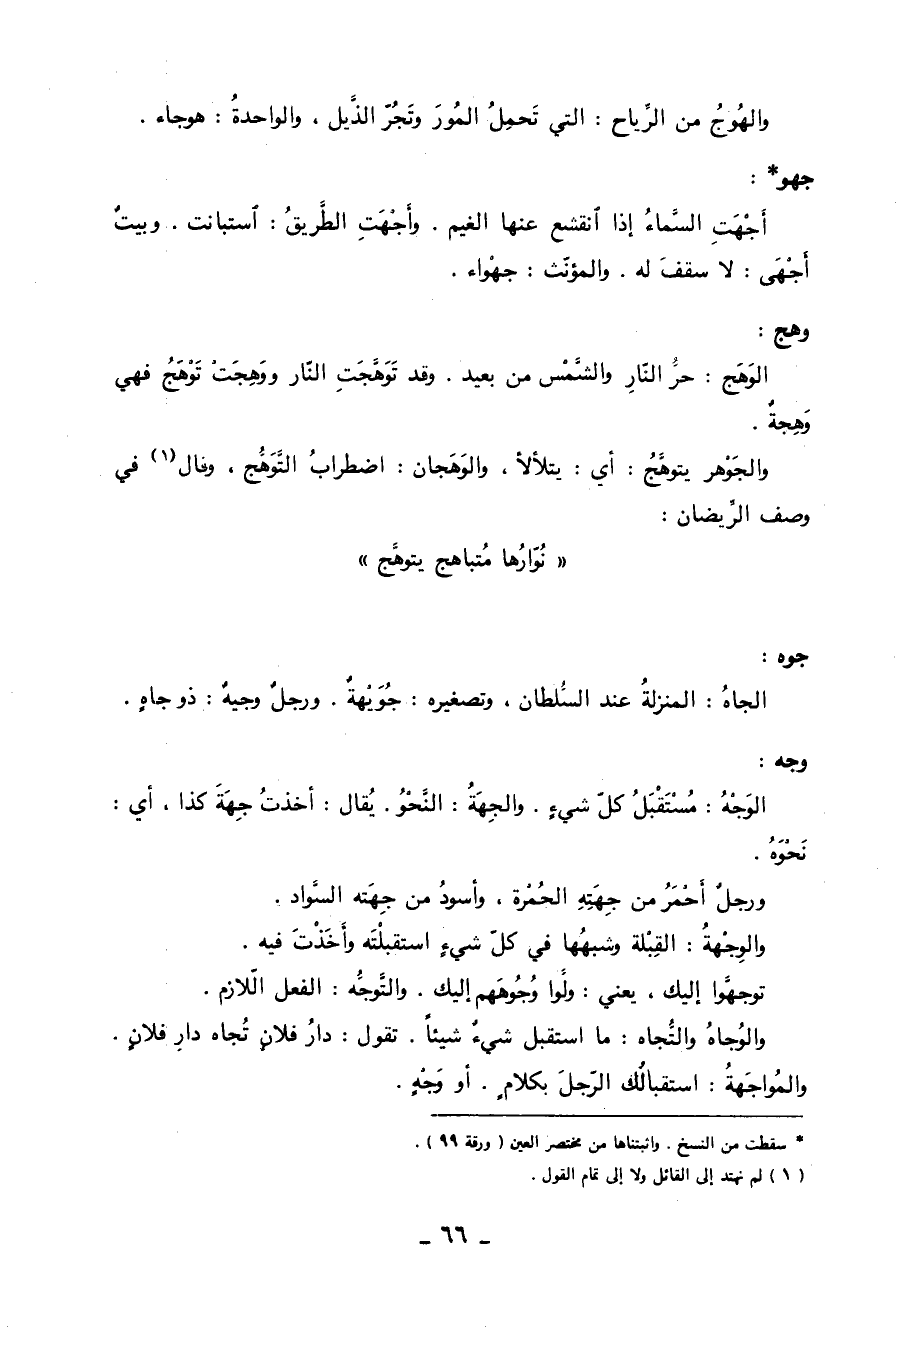 والهُوجُ من الرِّياح : التي تَحمِلُ المُورَ وتَجُرّ الذَّيل ، والواحدةُ : هوجاء .
جهو* :
أَجْهَتِ السَّماءُ إذا ٱنقشع عنها الغيم . وأَجْهَتِ الطَّريقُ : ٱستبانت . وبيتٌ
أَجْهَى : لا سقفَ له . والمؤنّث : جهْواء .
وهج :
الوَهَج : حرُّ النّارِ والشَّمْس من بعيد . وقد تَوَهَّجَتِ النّار ووَهِجَتْ تَوْهَجُ فهي
وَهِجةٌ .
والجَوْهر يتوهَّجُ : أي : يتلألأ ، والوَهَجان : اضطرابُ التَّوَهُّج ، وقال(١) في
وصف الرِّيضان :
« نُوّارُها مُتباهج يتوهَّج »
جوه :
الجاهُ : المنزلةُ عند السُّلطان ، وتصغيره : جُوَيْهةٌ . ورجلٌ وجيهٌ : ذو جاهٍ .
وجه :
الوَجْهُ : مُسْتَقْبَلُ كلّ شيءٍ . والجِهَةُ : النَّحْوُ . يُقال : أخذتُ جِهَةَ كذا ، أي :
نَحْوَهُ .
ورجلٌ أَحْمَرُ من جِهَتِهِ الحُمْرة ، وأسودُ من جِهَته السَّواد .
والوِجْهةُ : القِبْلة وشبهُها في كلّ شيءٍ استقبلْتَه وأَخَذْتَ فيه .
توجهَّوا إليك ، يعني : ولَّوا وُجُوهَهم إليك . والتَّوجُّه : الفعل اللّازم .
والوُجاهُ والتُّجاه : ما استقبل شيءٌ شيئاً . تقول : دارُ فلانٍ تُجاه دارِ فلانٍ .
والمُواجَهةُ : استقبالُك الرّجلَ بكلامٍ . أو وَجْهٍ .
* سقطت من النسخ . واثبتناها من مختصر العين ( ورقة ٩٩ ) .
( ١ ) لم نهتد إلى القائل ولا إلى تمام القول .
ـ ٦٦ ـ